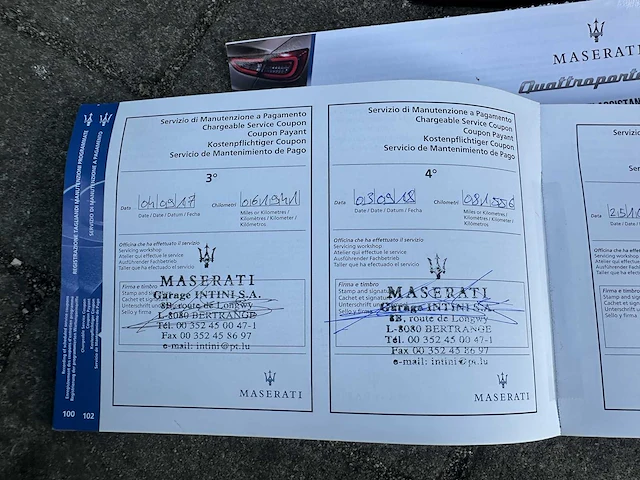 MASERATI
Quattroporte
REGISTRAZIONE TAGLIANDI MANUTENZIONE PROGRAMMATE
SERVIZIO DI MANUTENZIONE A PAGAMENTO
100 102
Servizio di Manutenzione a Pagamento
Chargeable Service Coupon
Coupon Payant
Kostenpflichtiger Coupon
Servicio de Mantenimiento de Pago
3°
Data 04 09 17
Date / Date / Datum / Fecha
Chilometri 061941
Miles or Kilometres /
Kilomètres /
Kilometer /
Kilómetros
Officina che ha effettuato il servizio
Servicing workshop
Atelier qui effectue le service
Ausführender Fachbetrieb
Taller que ha efectuado el servicio
Firma e timbro
Stamp and
Cachet et
Unterschrift
Sello y firma
MASERATI
Garage INTINI S.A.
8B, route de Longwy
L-8080 BERTRANGE
Tél. 00 352 45 00 47-1
Fax 00 352 45 86 97
e-mail: intini@pt.lu
MASERATI
Servizio di Manutenzione a Pagamento
Chargeable Service Coupon
Coupon Payant
Kostenpflichtiger Coupon
Servicio de Mantenimiento de Pago
4°
Data 03 09 18
Date / Date / Datum / Fecha
Chilometri 081556
Miles or Kilometres /
Kilomètres /
Kilometer /
Kilómetros
Officina che ha effettuato il servizio
Servicing workshop
Atelier qui effectue le service
Ausführender Fachbetrieb
Taller que ha efectuado el servicio
Firma e timbro
Stamp and
Cachet et
Unterschrift
Sello y firma
MASERATI
Garage INTINI S.A.
8B, route de Longwy
L-8080 BERTRANGE
Tél. 00 352 45 00 47-1
Fax 00 352 45 86 97
e-mail: intini@pt.lu
MASERATI